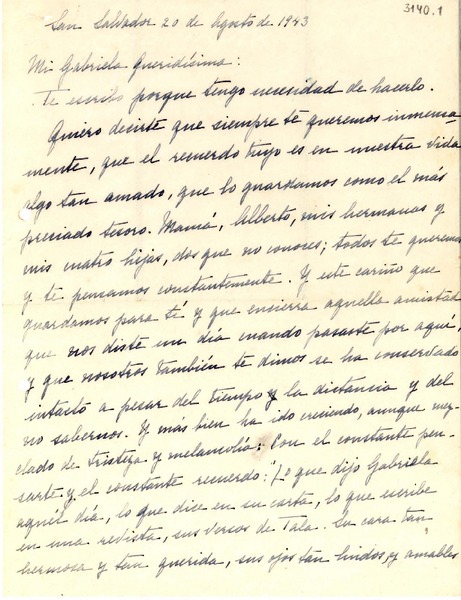 3140.1
San Salvador 20 de Agosto de 1943
Mi Gabriela Queridísima:
Te escribo porque tengo necesidad de hacerlo.
Quiero decirte que siempre te queremos inmensa-
mente, que el recuerdo tuyo es en nuestra vida
algo tan amado, que lo guardamos como el más
preciado tesoro. Mamá, Alberto, mis hermanas y
mis cuatro hijas, dos que no conoces; todos te queremos
y te pensamos constantemente. Y este cariño que
guardamos para tí y que encierra aquella amistad
que nos diste un día cuando pasaste por aquí,
y que nosotros también te dimos se ha conservado
intacto a pesar del tiempo y la distancia y del
no sabernos. Y más bien ha ido creciendo, aunque mez-
clado de tristeza y melancolía. Con el constante pen-
sarte y el constante recuerdo: Lo que dijo Gabriela
aquél día, lo que dice en su carta, lo que escribe
en una revista, sus versos de Tala. Su cara tan
hermosa y tan querida, sus ojos tan lindos, y amables